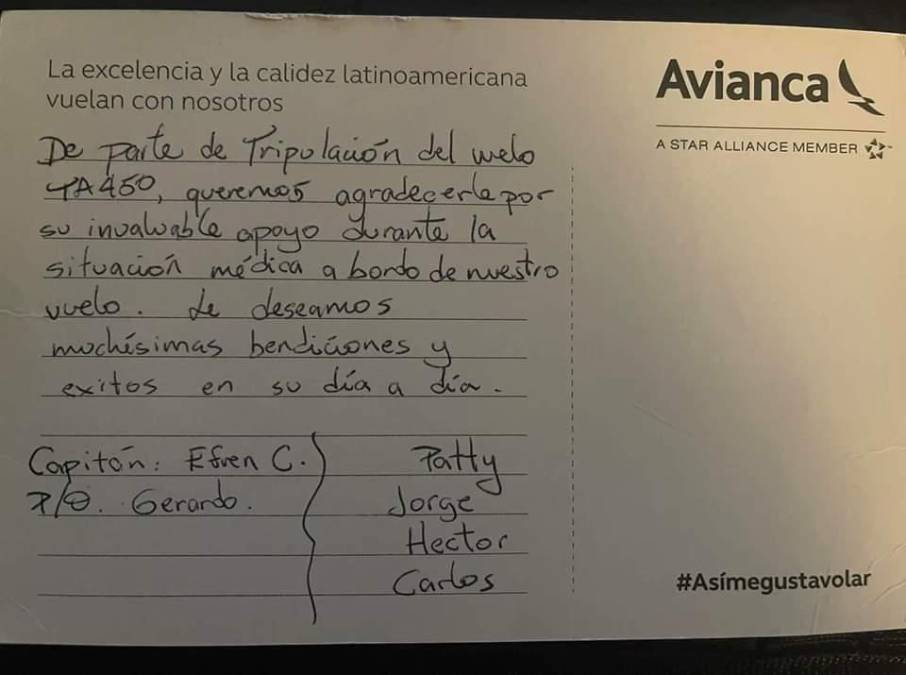 La excelencia y la calidez latinoamericana
vuelan con nosotros
Avianca
A STAR ALLIANCE MEMBER
De parte de Tripulación del vuelo
TA450, queremos agradecerle por
su invaluable apoyo durante la
situación médica a bordo de nuestro
vuelo. Le deseamos
muchísimas bendiciones y
exitos en su día a día.
Capitán: Efren C.
F/O. Gerardo.
Patty
Jorge
Hector
Carlos
#Asímegustavolar